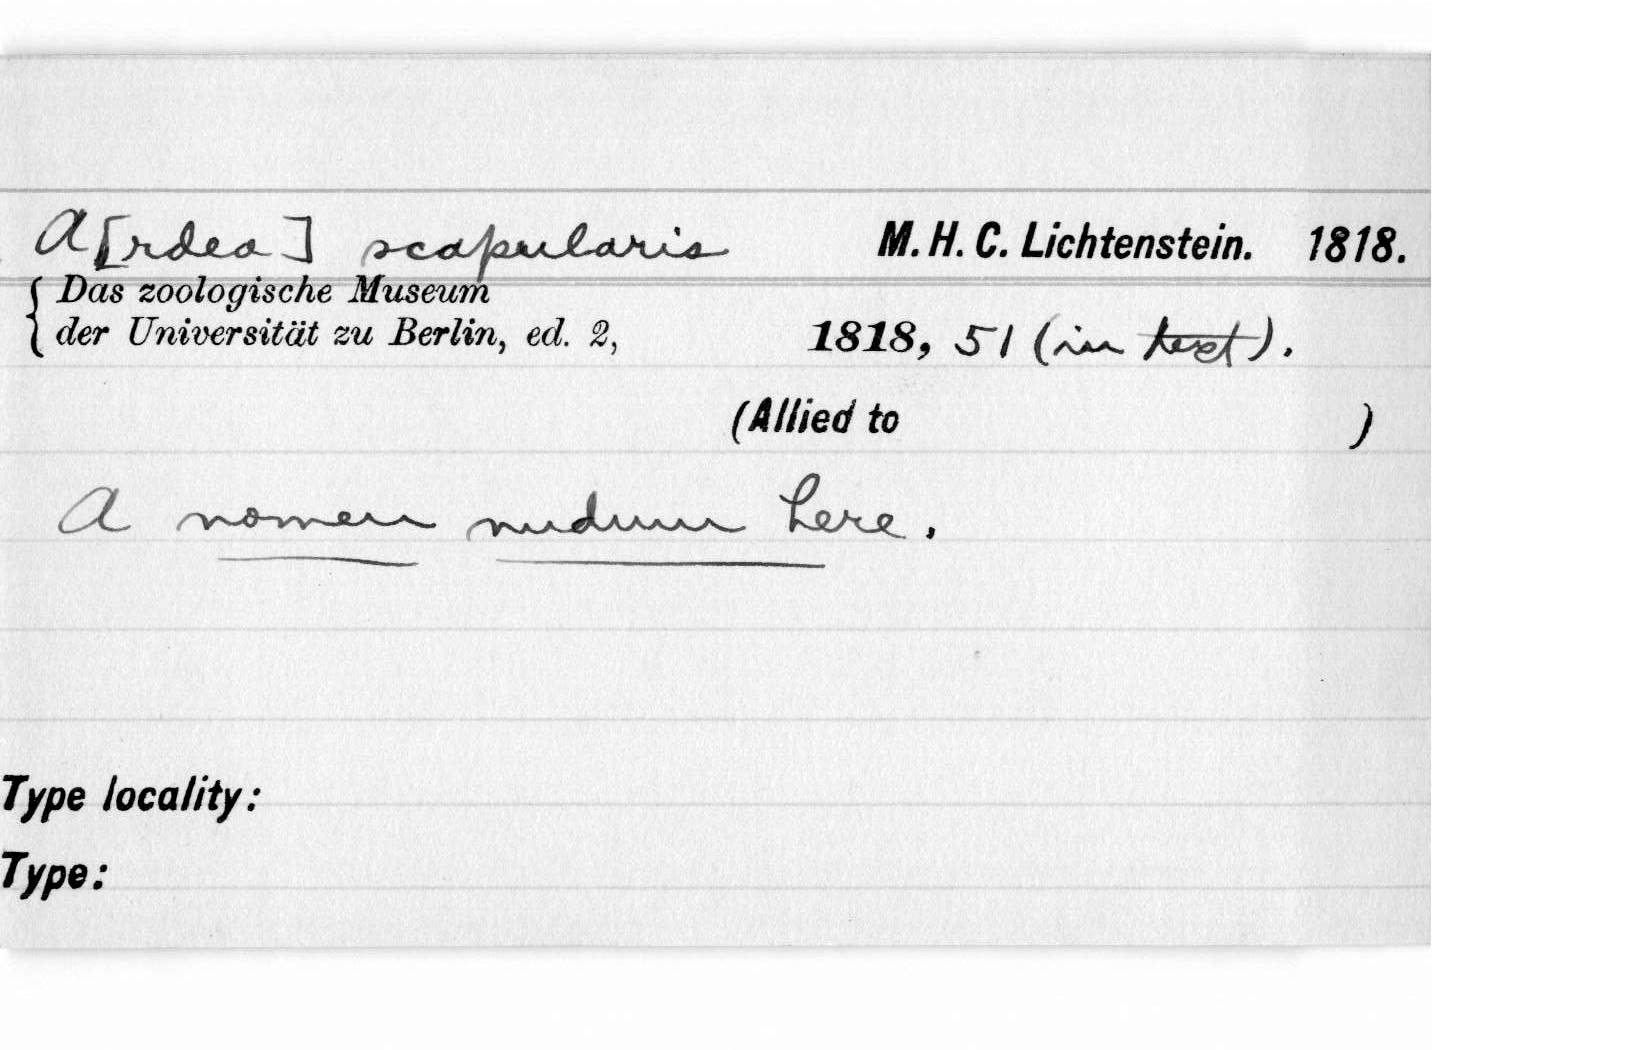 A[rdea] scapularis M. H. C. Lichtenstein. 1818.
{ Das zoologische Museum
der Universität zu Berlin, ed. 2, 1818, 51 (in text).
(Allied to )
A nomen nudum here.
Type locality:
Type: